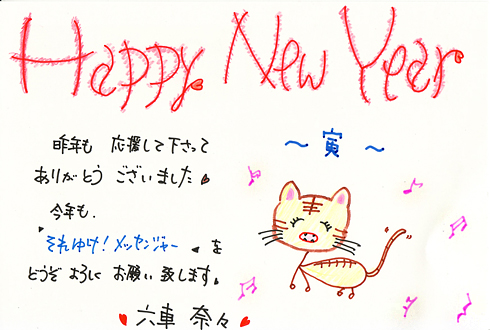 Happy New Year
昨年も 応援して下さって
ありがとう ございました
～ 寅 ～
今年も、
それゆけ！メッセンジャー を
どうぞ よろしく お願い致します。
六車 奈々